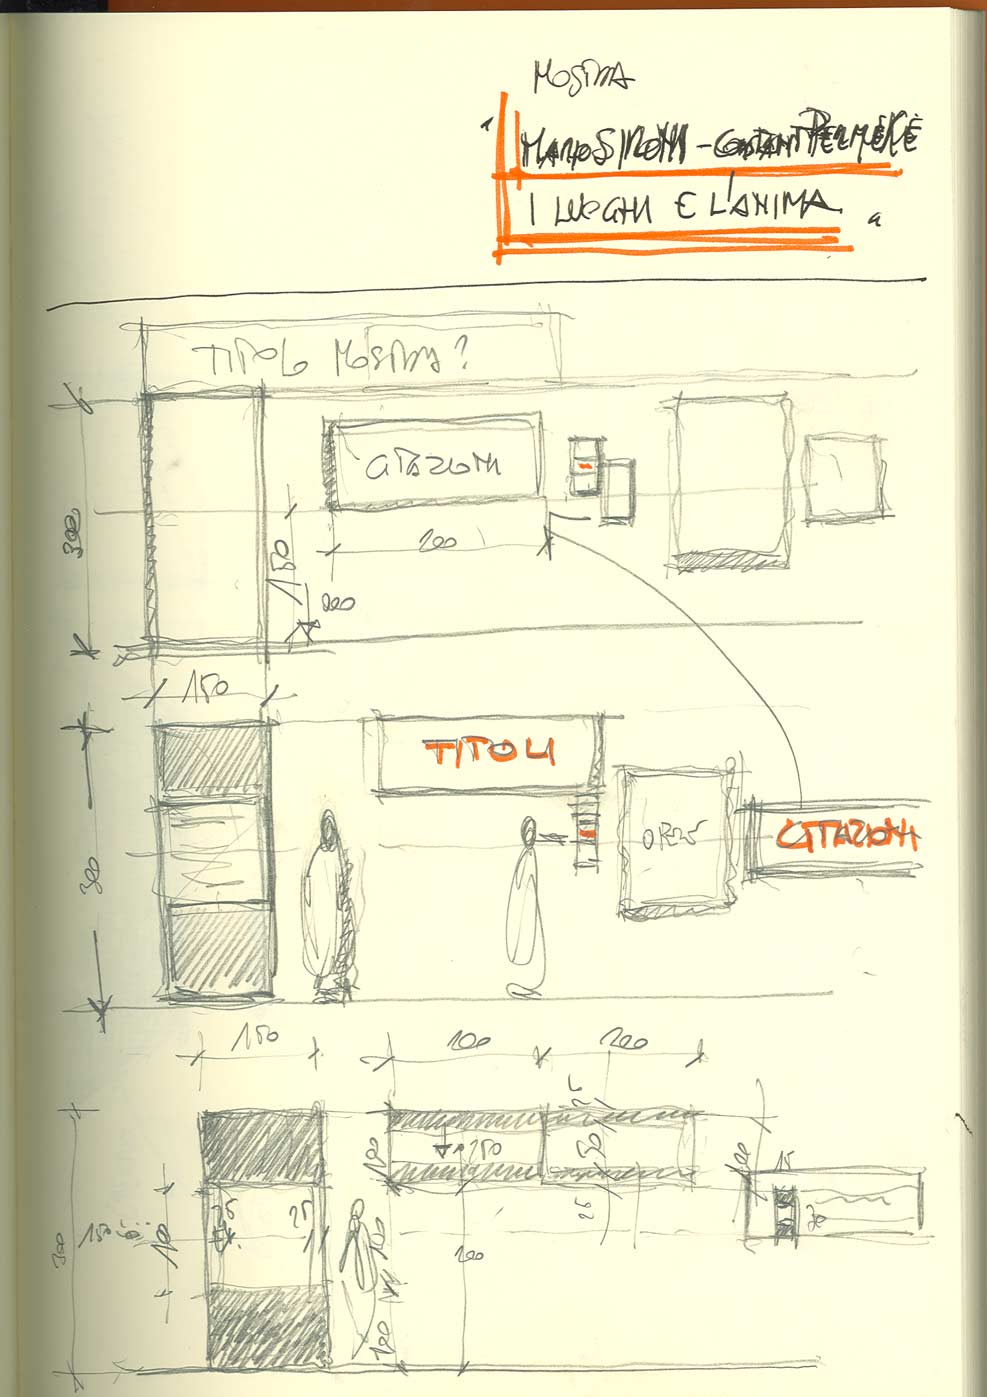 MOSTRA
"MARIO SIRONI - CONSTANT PERMEKE
I LUOGHI E L'ANIMA"
TITOLO MOSTRA?
CITAZIONI
300
200
150
200
150
TITOLI
300
OPERE
CITAZIONI
150
100
200
25
100
250
50
100
15
25
25
25
300
150
100
100
200
100